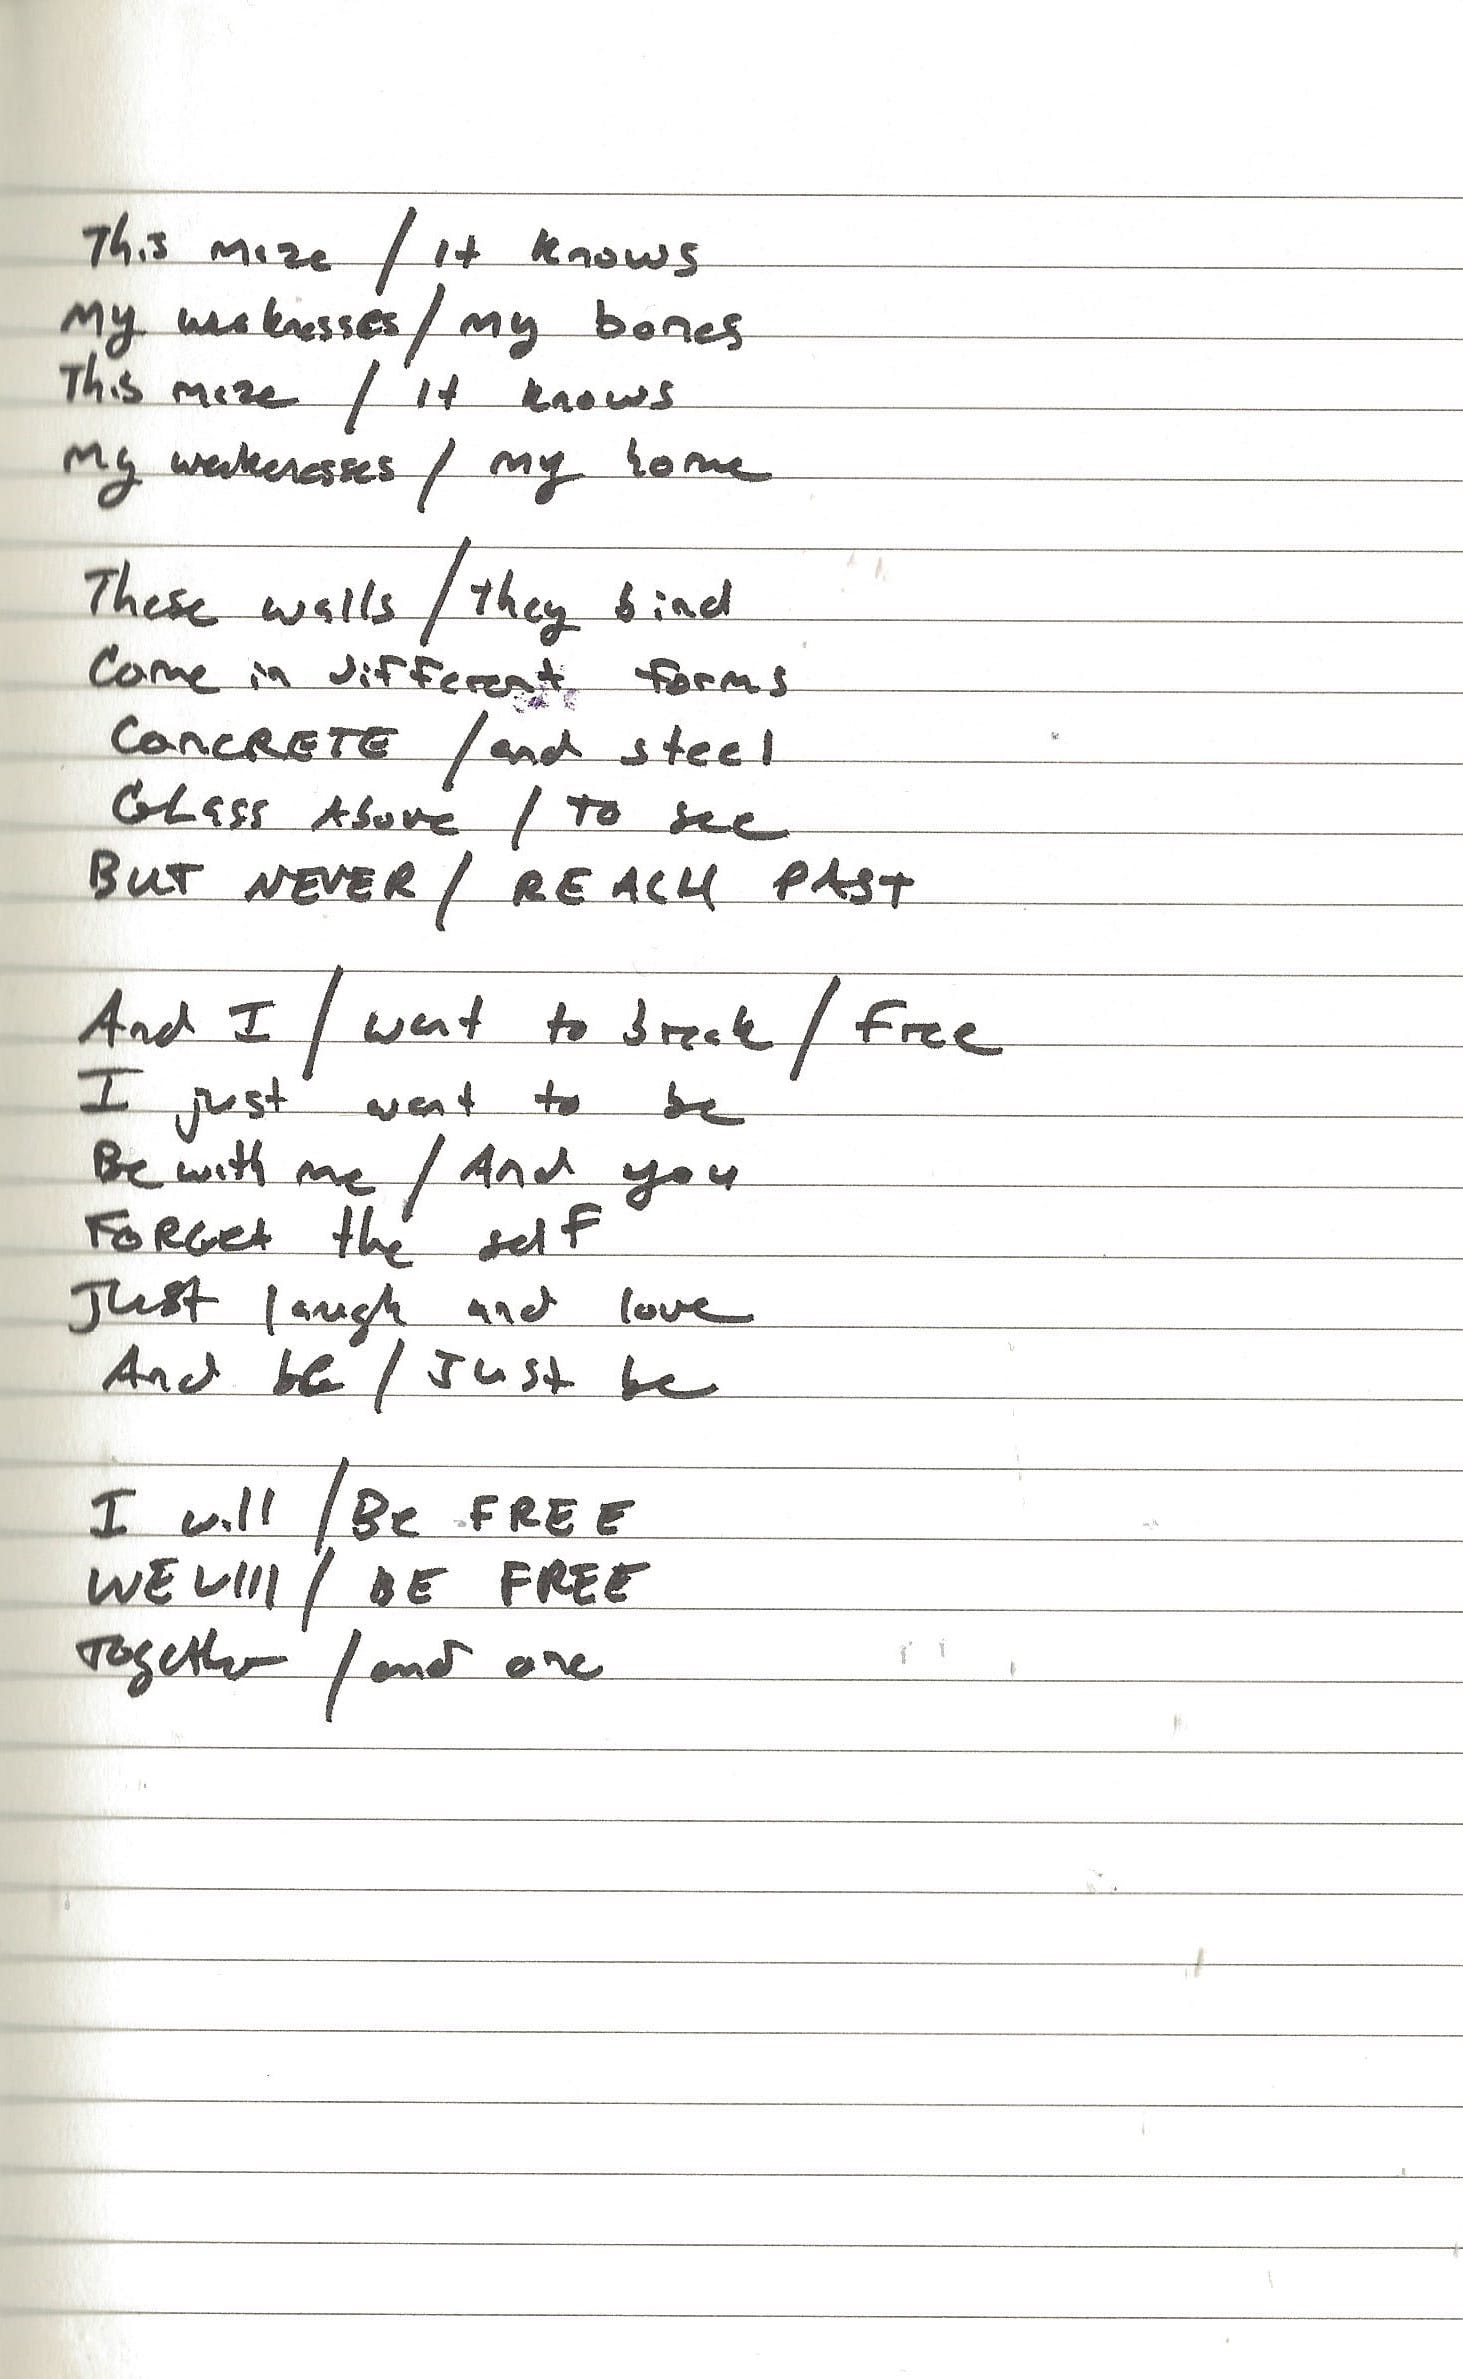 This maze / It knows
My weaknesses / my bones
This maze / It knows
My weaknesses / my home
These walls / they bind
Come in different forms
CONCRETE / and steel
GLASS Above / To see
BUT NEVER / REACH PAST
And I / want to break / free
I just want to be
Be with me / And you
FORGET the self
Just laugh and love
And be / Just be
I will / Be FREE
WE WIll / BE FREE
Together / and one